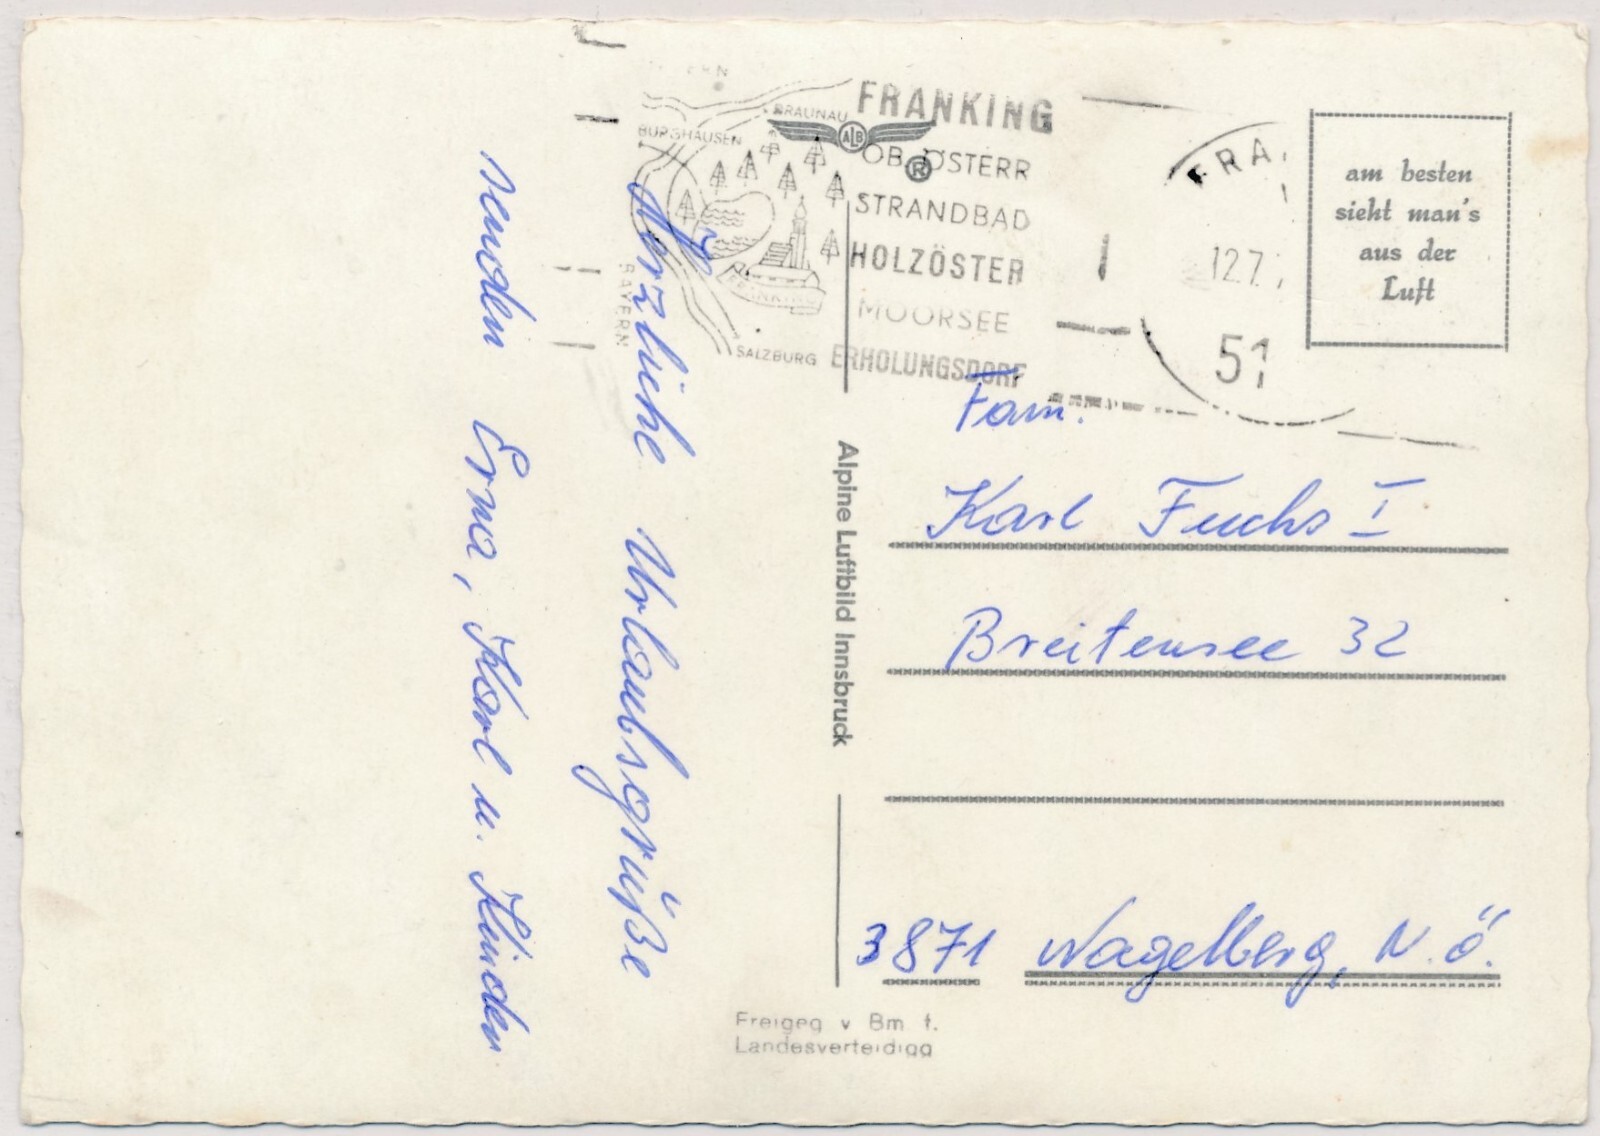 BRAUNAU
BURGHAUSEN
BAYERN
FRANKING
SALZBURG
FRANKING
OB. ÖSTERR
STRANDBAD
HOLZÖSTER
MOORSEE
ERHOLUNGSDORF
ALB
®
FRA
12.7.
51
am besten
sieht man's
aus der
Luft
Herzliche Urlaubsgrüße
senden Erna, Karl u. Kinder
Alpine Luftbild Innsbruck
Fam.
Karl Fuchs I
Breitensee 32
3871 Nagelberg, N.Ö.
Freigeg v Bm f.
Landesverteidigg